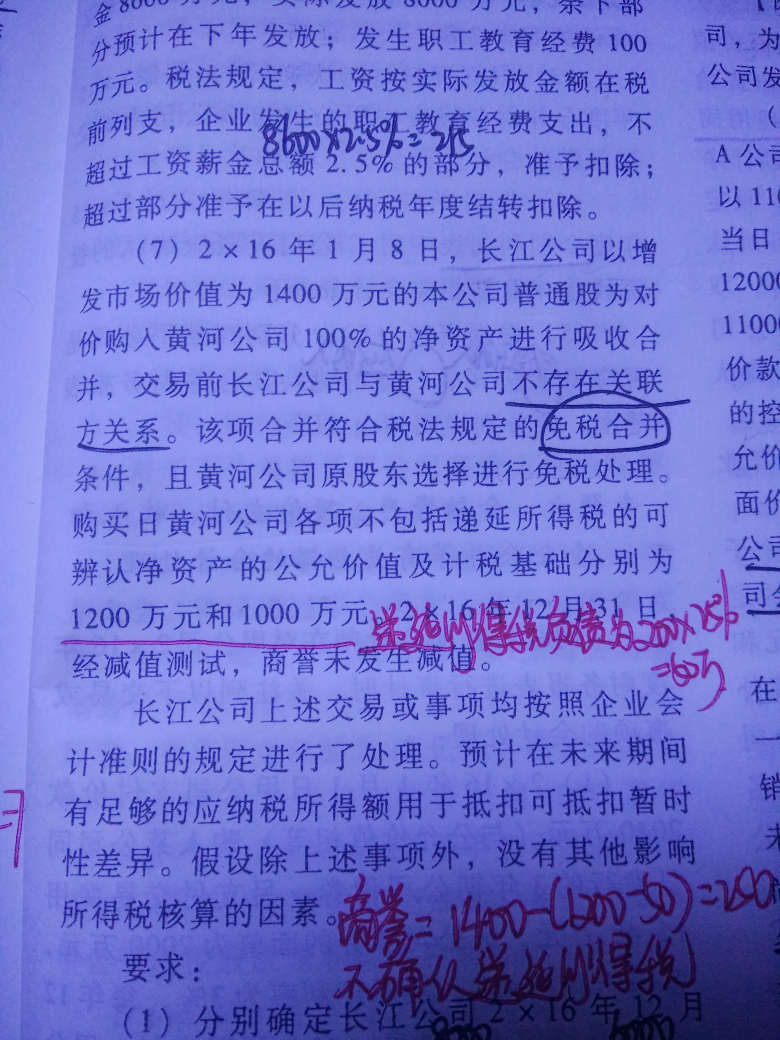 金8600万元，实际发放8000万元，余下部
分预计在下年发放；发生职工教育经费100
万元。税法规定，工资按实际发放金额在税
前列支，企业发生的职工教育经费支出，不
8600×2.5%=215
超过工资薪金总额2.5%的部分，准予扣除；
超过部分准予在以后纳税年度结转扣除。
（7）2×16年1月8日，长江公司以增
发市场价值为1400万元的本公司普通股为对
价购入黄河公司100%的净资产进行吸收合
并，交易前长江公司与黄河公司不存在关联
方关系。该项合并符合税法规定的免税合并
条件，且黄河公司原股东选择进行免税处理。
购买日黄河公司各项不包括递延所得税的可
辨认净资产的公允价值及计税基础分别为
1200万元和1000万元。2×16年12月31日，
递延所得税负债为200×25%
经减值测试，商誉未发生减值。
长江公司上述交易或事项均按照企业会
计准则的规定进行了处理。预计在未来期间
有足够的应纳税所得额用于抵扣可抵扣暂时
性差异。假设除上述事项外，没有其他影响
所得税核算的因素。
商誉=1400-(1200-50)=250
不确认递延所得税
要求：
（1）分别确定长江公司2×16年12月
司，为
公司发
A公司
以110
当日
12000
11000
价款
的控
允价
面价
公司
司
在
一
销